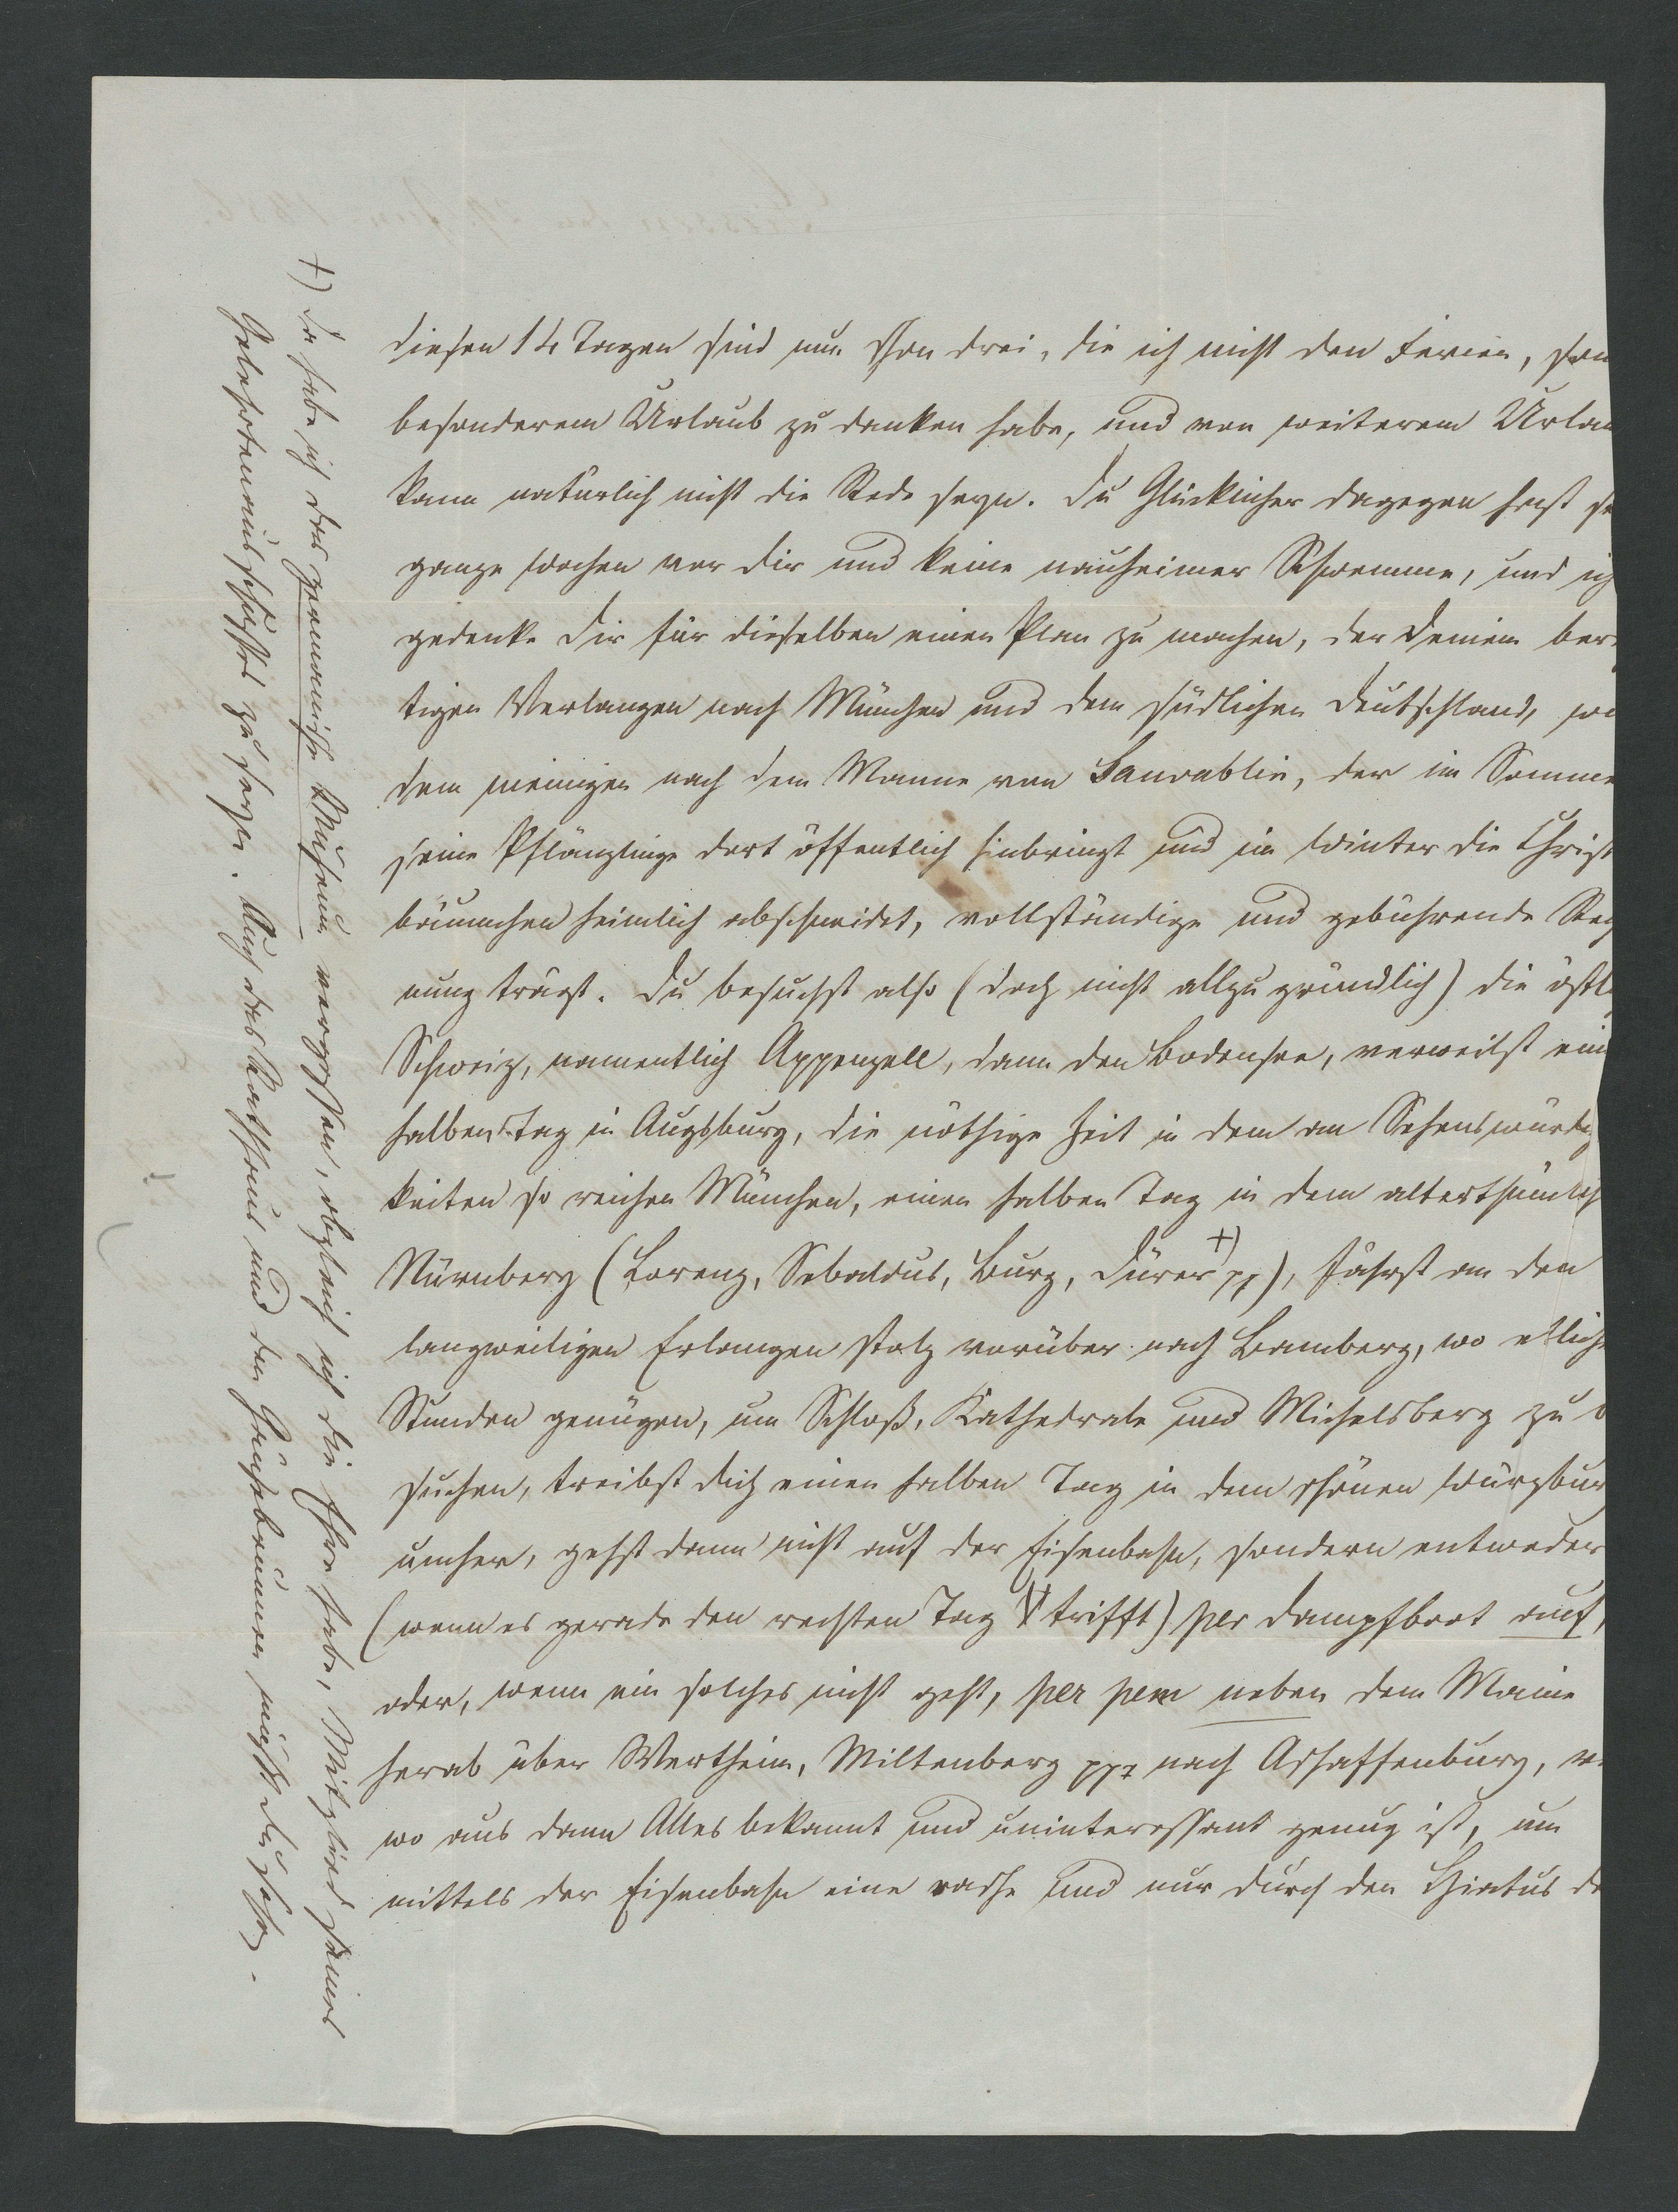 diesen 14 Tagen sind nun schon drei, die ich nicht den Ferien, son
besonderem Urlaub zu danken habe, und von weiterem Urlau
kann natürlich nicht die Rede seyn. Du Glücklicher dagegen hast
ganze Wochen vor dir und keine nauheimer Schwemme, und ich
gedenke dir für dieselben einen Plan zu machen, der Deinem ber
tigen Verlangen nach München und dem südlichen Deutschland,
dem meinigen nach dem Manne von der im Somme
seine Pflänzlinge dort öffentlich hinbringt und im Winter die Christ
bäumchen heimlich abschneidet, vollständige und gebührende Rech
nung trägt. Du besuchst also (doch nicht allzu gründlich) die östl
Schweiz, namentlich Appenzell, dann den Bodensee, verweilst ein
halben Tag in Augsburg, die nöthige Zeit in dem an Sehenswürdig
keiten so reichen München, einen halben Tag in dem alterthümlich
Nürnberg (Lorenz, Sebaldus, Burg, Dürer +) pp), fährst an dem
langweiligen Erlangen stolz vorüber nach Bamberg, wo etliche
Stunden genügen, um Schloß, Kathedrale und Michelsberg zu b
suchen, treibst dich einen halben Tag in dem schönen Würzbur
umher, gehst dann nicht auf der Eisenbahn, sondern entweder
(wenn es gerade den rechten Tag trifft) per Dampfboot auf,
oder, wenn ein solches nicht geht, per pem neben dem Maine
herab über Wertheim, Miltenberg ppp nach Aschaffenburg, v
wo aus dann Alles bekannt und uninteressant genug ist, um
mittels der Eisenbahn eine rasche und nur durch den Hiatus de
+) Da habe ich das germanische Museum vergessen, obgleich ich die Ehre habe, Mitglied seines
Gelehrtenausschusses zu seyn. Auch das Rathhaus und den Gänsebrunnen mußt du sehen.